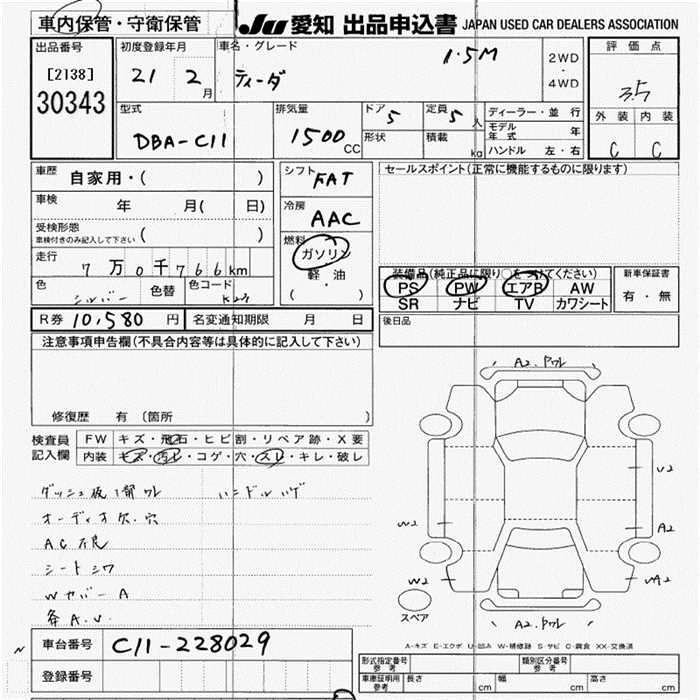 車内保管・守衛保管
JU 愛知 出品申込書 JAPAN USED CAR DEALERS ASSOCIATION
出品番号
[2138]
30343
初度登録年月
21 2月
車名・グレード
ティーダ 1.5M
2WD
・
4WD
評価点
3.5
外装 内装
C C
型式
DBA-C11
排気量
1500 CC
ドア 5
形状
定員 5 人
積載 kg
ディーラー・並行
モデル年式 年
ハンドル 左・右
車歴 自家用・( )
車検 年 月( 日)
受検形態
車検付きのみ記入して下さい ( )
走行 7万0千766km
色 シルバー
色替
色コード K23
シフト FAT
冷房 AAC
燃料
ガソリン
軽油
・
( )
セールスポイント(正常に機能するものに限ります)
装備品(純正品に限り○をつけてください)
PS PW エアB AW
SR ナビ TV カワシート
新車保証書
有・無
R券 10,580 円
名変通知期限 月 日
後日品
注意事項申告欄(不具合内容等は具体的に記入して下さい)
修復歴 有 (箇所 )
検査員記入欄
FW キズ・飛石・ヒビ割・リペア跡・X要
内装 キズ・汚レ・コゲ・穴・スレ・キレ・破レ
ハンドルハゲ
オーディオ欠.穴
AC不良
シートシワ
Wカバー A
各A.U
A2.ワレ
U2
W2
A2
W2
WA2
スペア
A2.ワレ
A-キズ E-エクボ U-凹み W-補修跡 S-サビ C-腐食 XX-交換済
車台番号 C11-228029
登録番号
型式指定番号
参考
類別区分番号
参考
車庫証明用
参考
長さ cm
幅 cm
高さ cm